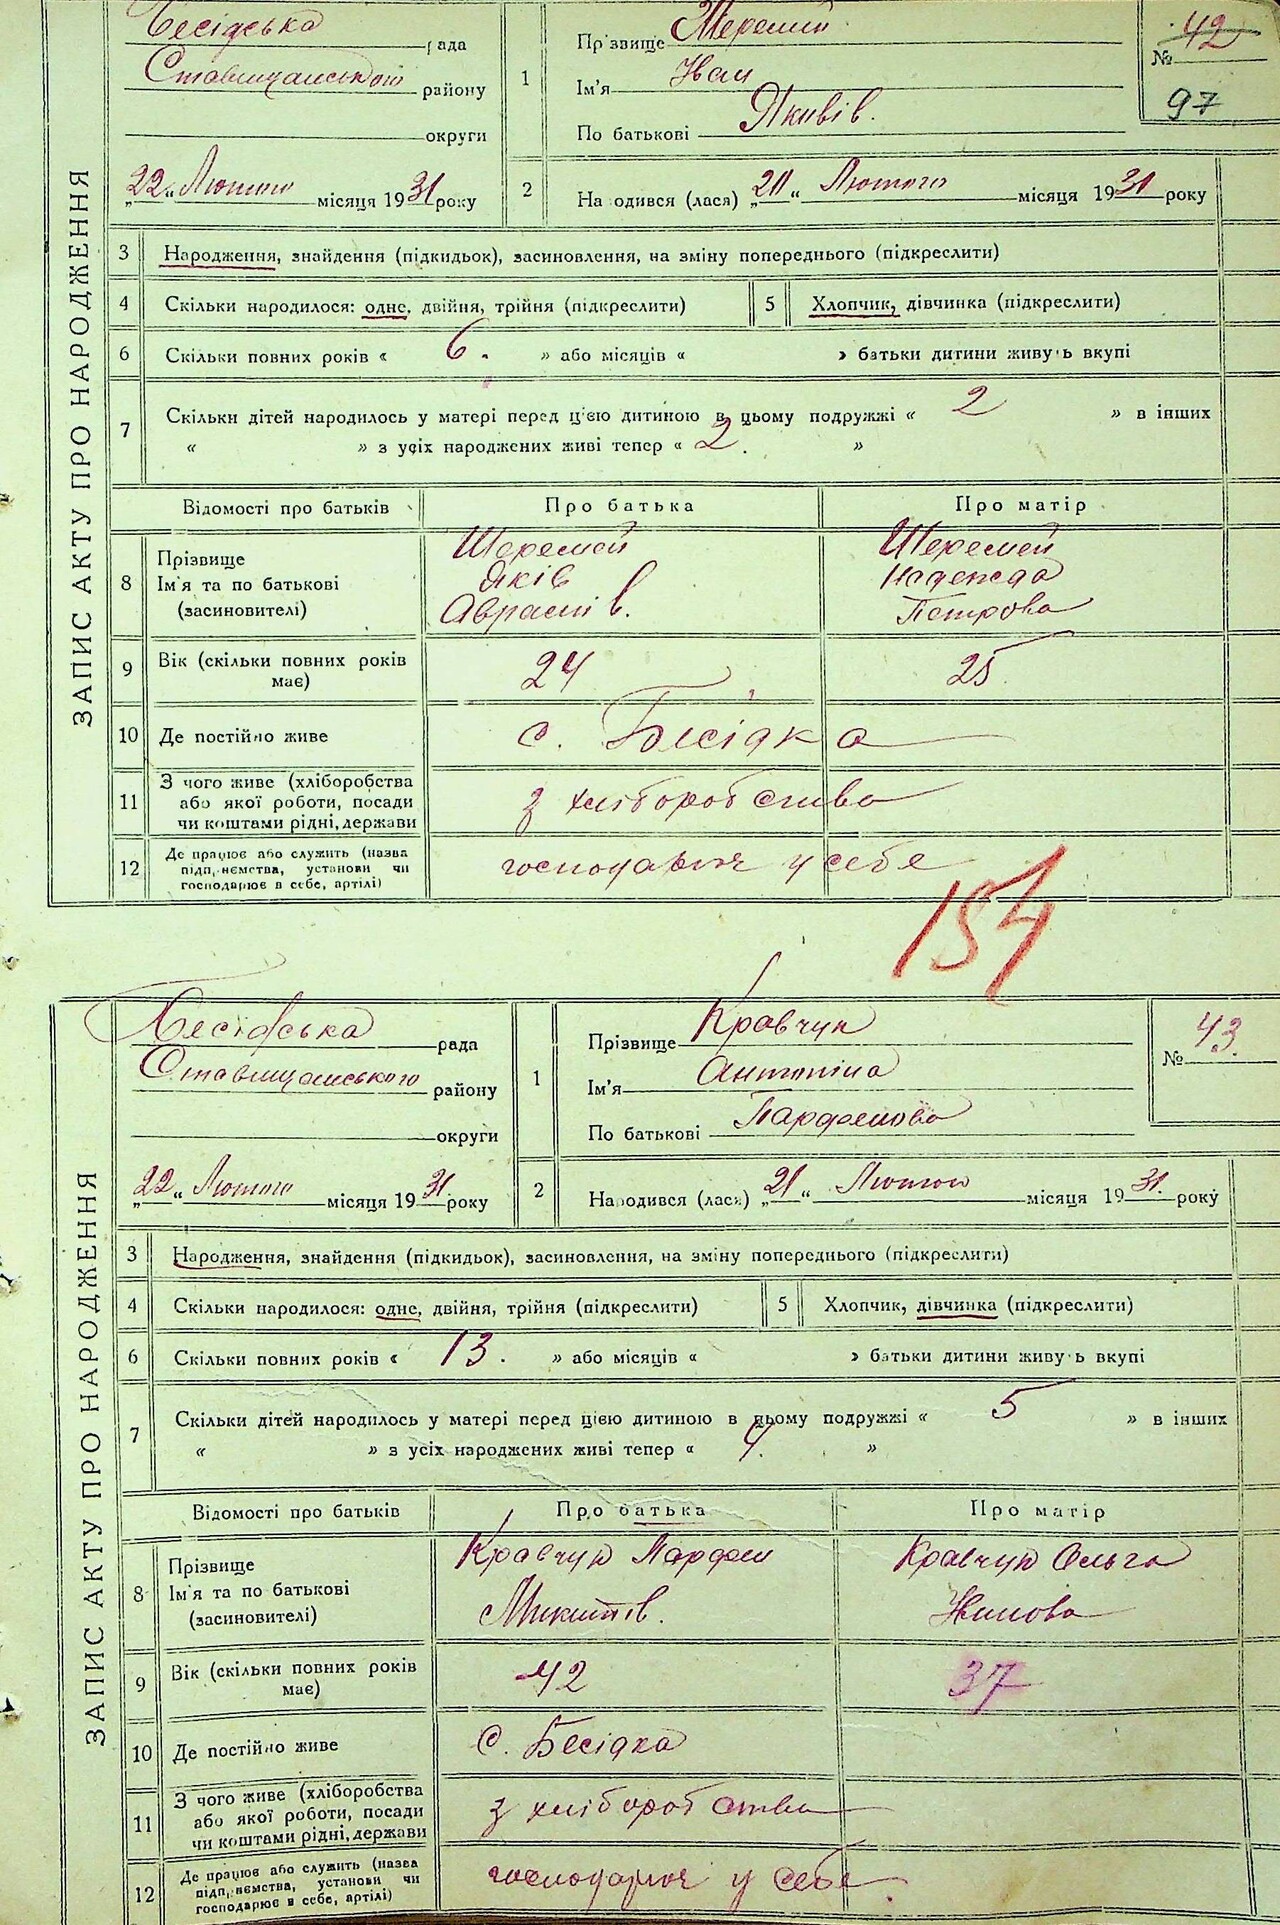 ЗАПИС АКТУ ПРО НАРОДЖЕННЯ
Бесідська рада
Ставищанського району
округи
„22“ Лютого місяця 1931 року
1
Прізвище
Ім'я Іван
По батькові Яківів.
№ 42
97
2 На одився (лася) „20“ Лютого місяця 1931 року
3 Народження, знайдення (підкидьок), засиновлення, на зміну попереднього (підкреслити)
4 Скільки народилося: одне, двійня, трійня (підкреслити) 5 Хлопчик, дівчинка (підкреслити)
6 Скільки повних років « 6. » або місяців « » батьки дитини живуть вкупі
7 Скільки дітей народилось у матері перед цією дитиною в цьому подружжі « 2 » в інших
« » з усіх народжених живі тепер « 2. »
Відомості про батьків Про батька Про матір
8 Прізвище Шеремей Шеремей
Ім'я та по батькові Яків Надежда
(засиновителі) Аврамів. Петрова
9 Вік (скільки повних років має) 24 25
10 Де постійно живе с. Бесідка
11 З чого живе (хліборобства або якої роботи, посади чи коштами рідні, держави з хліборобства
12 Де працює або служить (назва підп, нємства, установи чи господарює в себе, артілі) господарює у себе
154
ЗАПИС АКТУ ПРО НАРОДЖЕННЯ
Бесідська рада
Ставищанського району
округи
„22“ Лютого місяця 1931 року
1
Прізвище Кравчук
Ім'я Антоніна
По батькові Парфенова
№ 43.
2 Народився (лася) „21“ Лютого місяця 1931. року
3 Народження, знайдення (підкидьок), засиновлення, на зміну попереднього (підкреслити)
4 Скільки народилося: одне, двійня, трійня (підкреслити) 5 Хлопчик, дівчинка (підкреслити)
6 Скільки повних років « 13. » або місяців « » батьки дитини живуть вкупі
7 Скільки дітей народилось у матері перед цією дитиною в цьому подружжі « 5 » в інших
« » з усіх народжених живі тепер « 4. »
Відомості про батьків Про батька Про матір
8 Прізвище Кравчук Парфен Кравчук Ольга
Ім'я та по батькові Микитів.
(засиновителі)
9 Вік (скільки повних років має) 42 37
10 Де постійно живе с. Бесідка
11 З чого живе (хліборобства або якої роботи, посади чи коштами рідні, держави з хліборобства
12 Де працює або служить (назва підп, нємства, установи чи господарює в себе, артілі) господарює у себе.